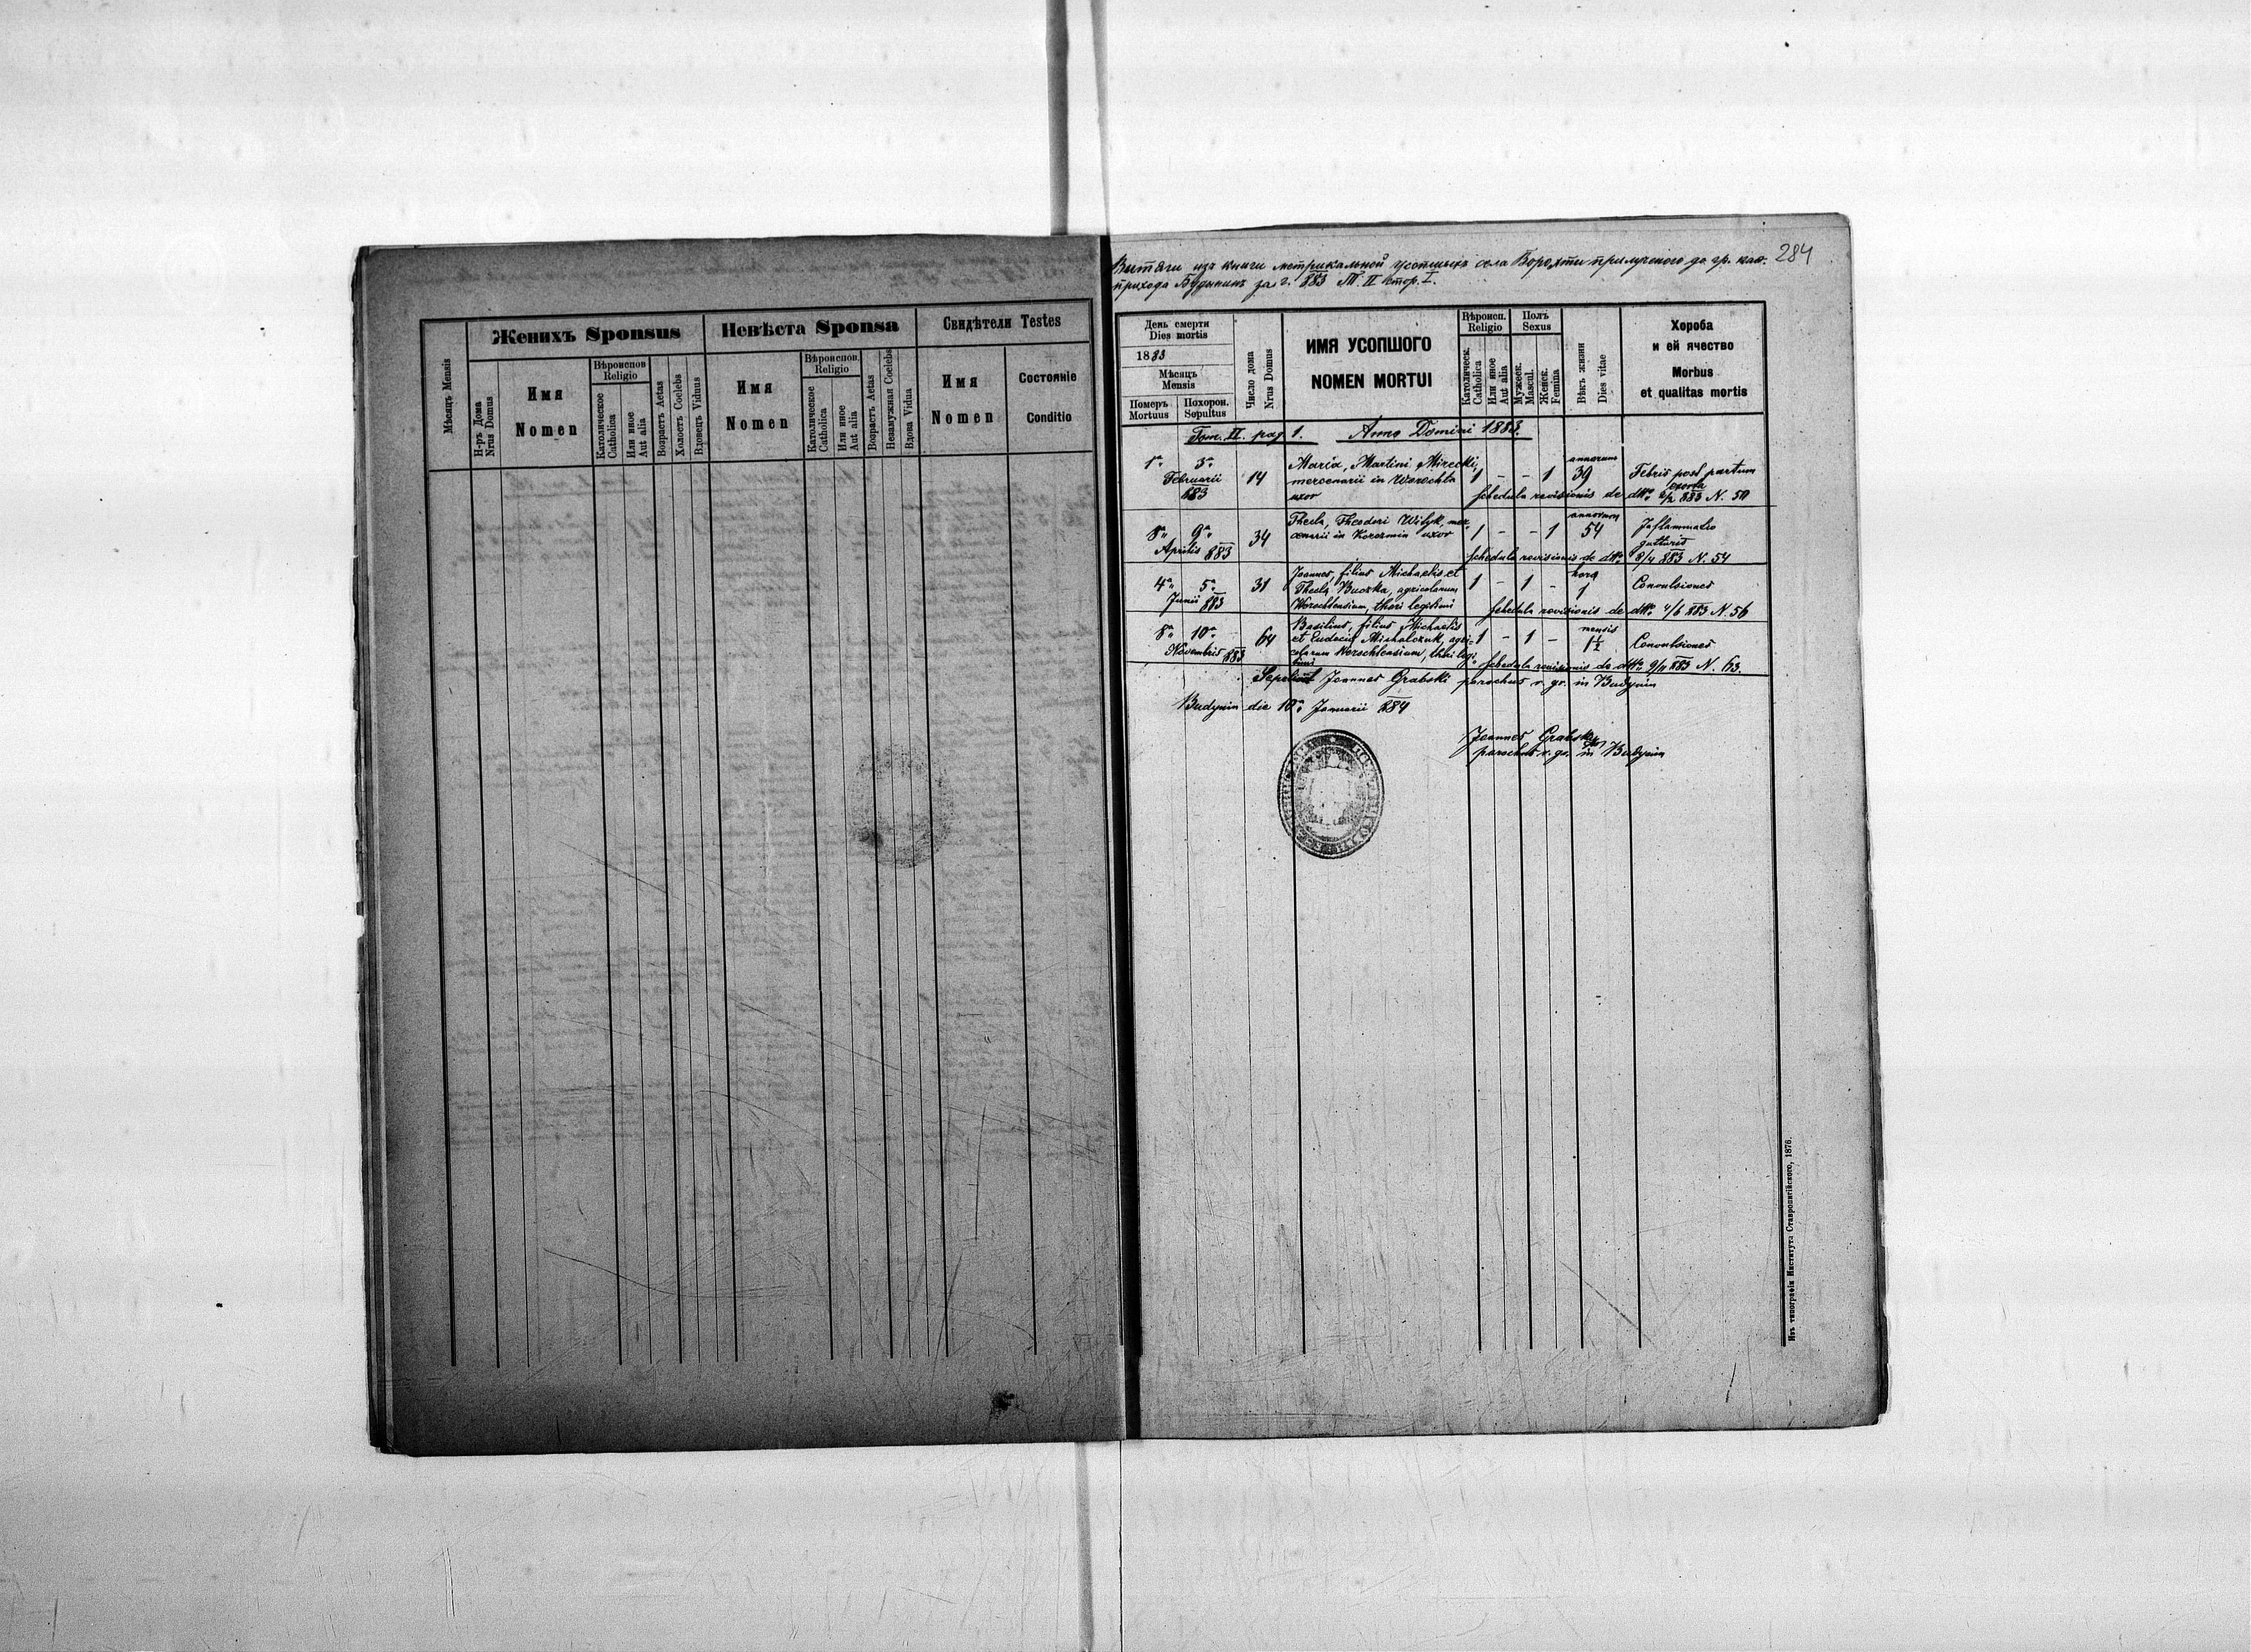 Женихъ Sponsus
Невѣста Sponsa
Свидѣтели Testes
Мѣсяцъ Mensis
Н-ръ Дома
Nrus Domus
Имя
Nomen
Вѣроиспов
Religio
Католическое
Catholica
Или иное
Aut alia
Возрастъ Aetas
Холостъ Coelebs
Вдовецъ Viduus
Имя
Nomen
Вѣроиспов.
Religio
Католическое
Catholica
Или иное
Aut alia
Возрастъ Aetas
Незамужная Coelebs
Вдова Vidua
Имя
Nomen
Состояніе
Conditio
284
Вытяги изъ книги метрикальной усопшыхъ села Ворохти прилученого до гр. кат.
прихода Будынинъ за г. 883 Т. II стор. I.
День смерти
Dies mortis
1883
Мѣсяцъ
Mensis
Померъ
Mortuus
Похорон.
Sepultus
Число дома
Nrus Domus
ИМЯ УСОПШОГО
NOMEN MORTUI
Вѣроисп.
Religio
Католическ.
Catholica
Или иное
Aut alia
Полъ
Sexus
Мужеск.
Mascul.
Женск.
Femina
Вѣкъ жизни
Dies vitae
Хороба
и ей ячество
Morbus
et qualitas mortis
Tom. II. pag. 1. Anno Domini 1883.
1a 3a 14 Maria, Martini Mirecki, 1 - - 1 annorum 39 Febris post partum
Februarii mercenarii in Worochta exorta
883 uxor Schedula revisionis de dtto 2/2 883 N. 50
8a 9a 34 Thecla, Theodori Wilyk, mer- 1 - - 1 annorum 54 Inflammatio
Aprilis 883 cenarii in Korczmin uxor gutturis
Schedula revisionis de dtto 8/4 883 N. 54
4a 5a 31 Joannes, filius Michaelis et 1 - 1 - hora 1 Convulsiones
Junii 883 Thecla Buczka, agricolarum
Worochtensium, thori legitimi Schedula revisionis de dtto 4/6 883 N. 56
8a 10a 64 Basilius, filius Michaelis 1 - 1 - mensis 1½ Convulsiones
Novembris 883 et Eudocia Michalczuk, agri-
colarum Worochtensium, thori legi-
timi Schedula revisionis de dtto 9/11 883 N. 63.
Sepelivit Joannes Grabski parochus r. gr. in Budynin
Budynin die 10a Januarii 884
Joannes Grabski
parochus r. gr. in Budynin
Изъ типографіи Института Ставропигійского, 1876.